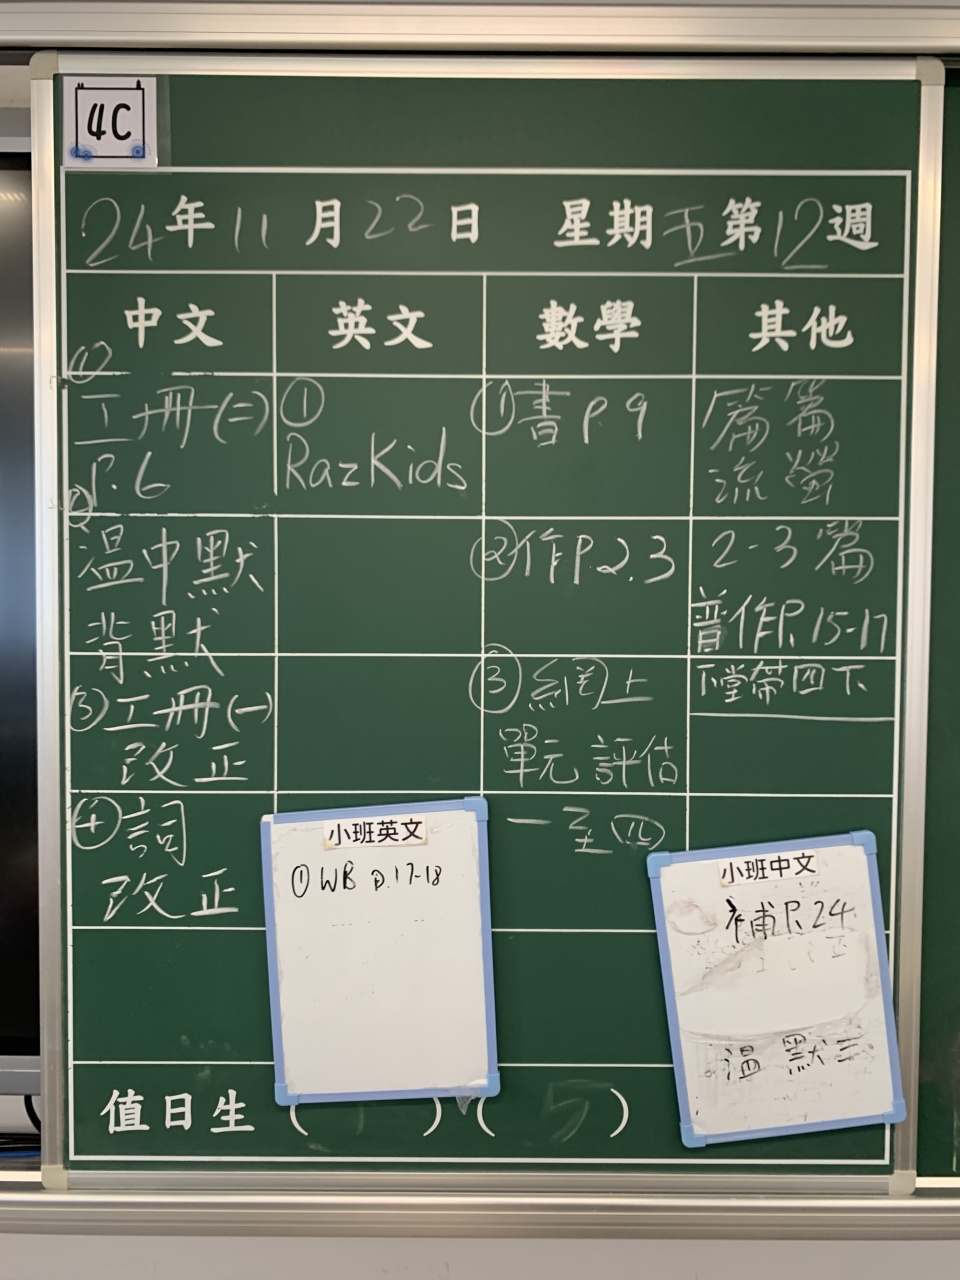 4C
24年11月22日 星期五第12週
中文
①
工冊(二)
P.6
②
溫中默
背默
③工冊(一)
改正
④詞
改正
英文
①
RazKids
數學
①書P.9
②作P.2.3
③網上
單元評估
一至四
其他
篇篇
流螢
2-3篇
普作P.15-17
下堂帶四下
小班英文
①WB p.17-18
小班中文
補P.24
溫 默三
值日生( )( 5 )